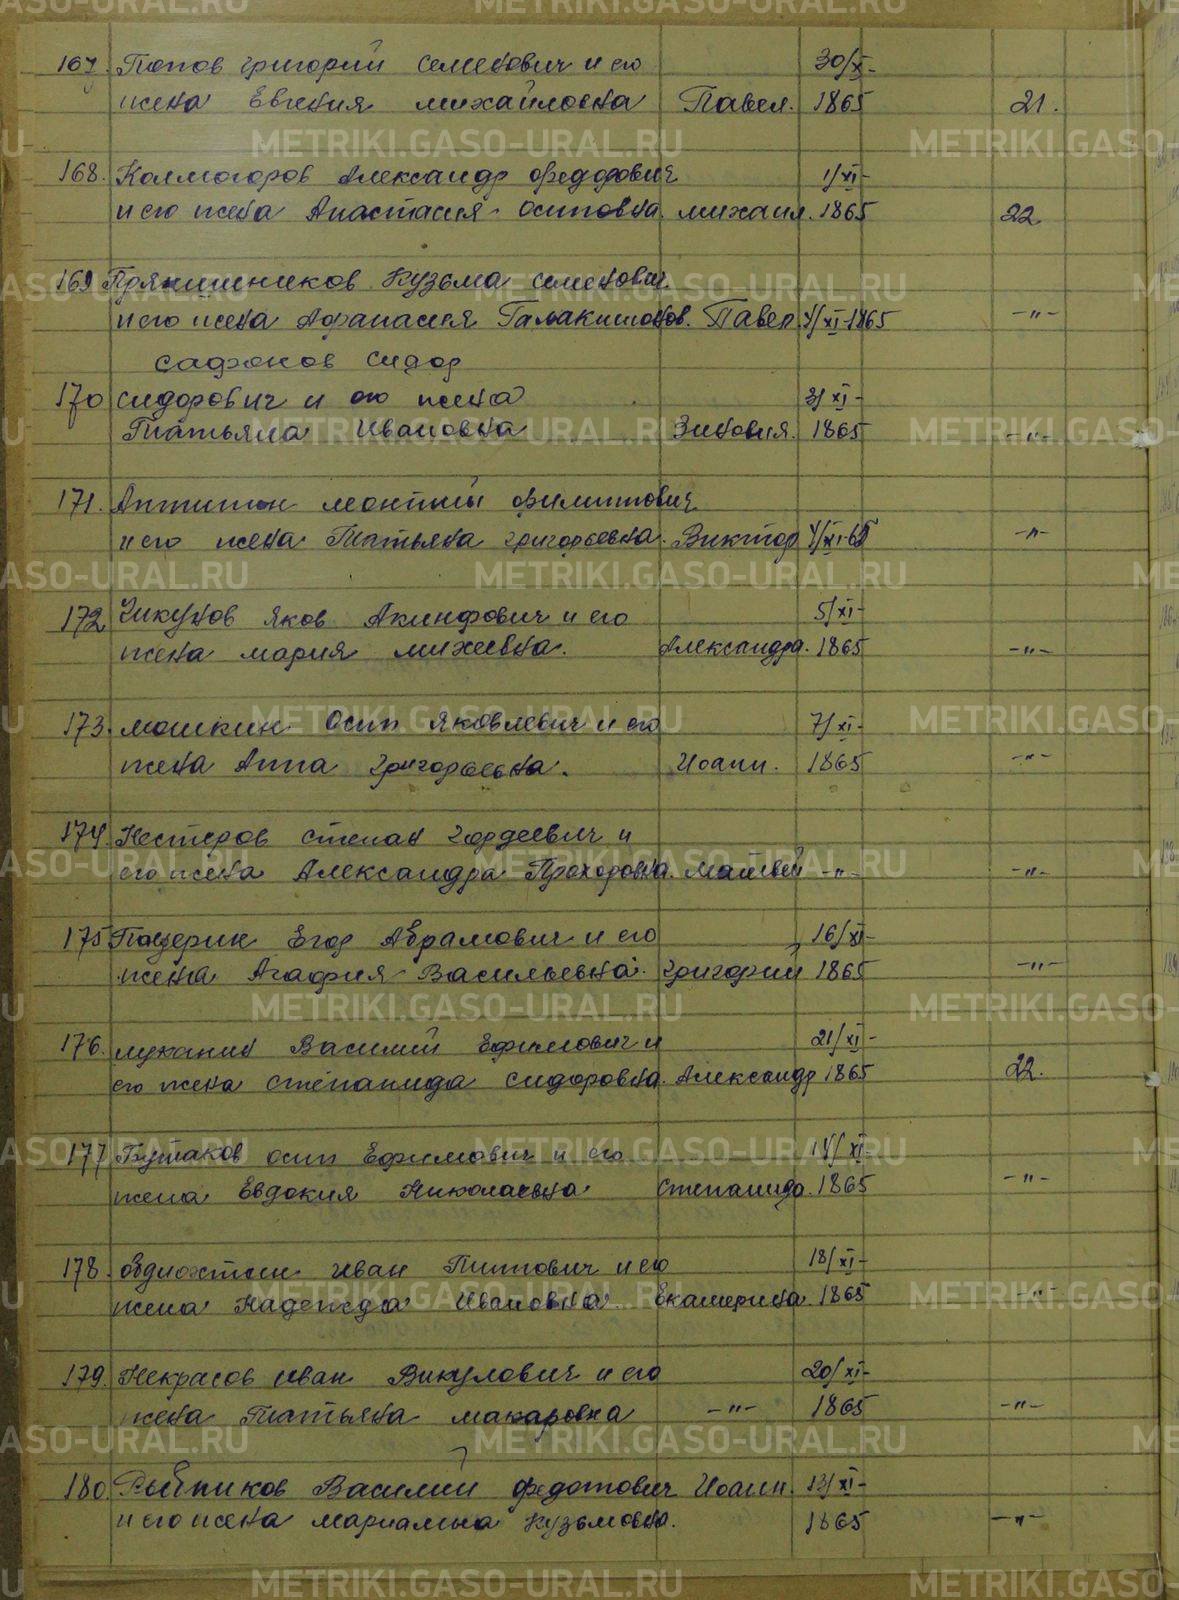 167. Попов Григорий Семенович и его 30/XI-
жена Евгения Михайловна Павел. 1865 21.
168. Колмогоров Александр Федорович 1/XI-
и его жена Анастасия Осиповна. Михаил. 1865 22
169 Прянишников Кузьма Семенович
и его жена Афанасия Павел 4/XI-1865 -"-
Сафонов Сидор
170 Сидорович и его жена 3/XI-
Татьяна Ивановна Зиновия. 1865 -"-
171. Антипин Леонтий Филиппович
и его жена Татьяна Григорьевна. Виктор 4/XI-65 -"-
172 Чикунов Яков Акинфович и его 5/XI-
жена Мария Михеевна. Александра. 1865 -"-
173. Мошкин Осип Яковлевич и его 7/XI-
жена Анна Григорьевна. Иоанн. 1865 -"-
174. Нестеров Степан Гордеевич и
его жена Александра Прохоровна. Матвей -"- -"-
175 Егор Абрамович и его 16/XI-
жена Агафия Васильевна. Григорий 1865 -"-
176. Луканин Василий Ефимович и 21/XI-
его жена Степанида Сидоровна. Александр 1865 22.
177 Бутаков Осип Ефимович и его 14/XI-
жена Евдокия Николаевна Степанида. 1865 -"-
178. Иван Титович и его 18/XI-
жена Надежда Ивановна. Екатерина. 1865 -"-
179. Некрасов Иван Викулович и его 20/XI-
жена Татьяна Макаровна -"- 1865 -"-
180. Рыбников Василий Федотович Иоанн. 13/XI-
и его жена Мариамна Кузьмовна. 1865 -"-
METRIKI.GASO-URAL.RU